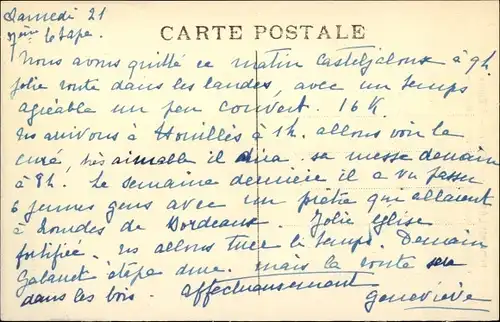 Samedi 21
7ème étape.
CARTE POSTALE
Nous avons quitté ce matin Casteljaloux à 9h.
jolie route dans les landes, avec un temps
agréable un peu couvert. 16 K.
ns arrivons à Houillès à 1h. allons voir le
curé, très aimable il dira sa messe demain
à 8h. Le semaine dernière il a vu passer
6 jeunes gens avec un prêtre qui allaient
à Lourdes de Bordeaux. Jolie église
fortifiée. ns allons tuer le temps. Demain
étape dure. mais la route sera
dans les bois. affectueusement
Geneviève